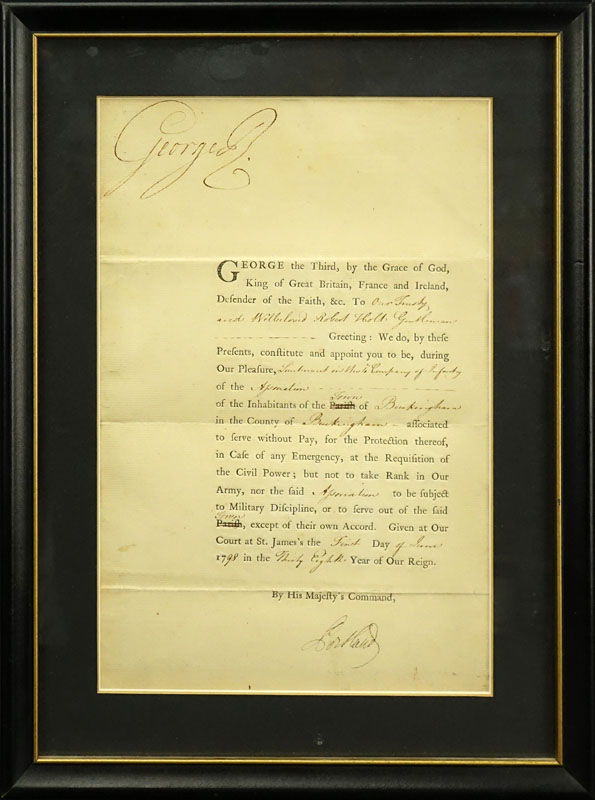 George R.
GEORGE the Third, by the Grace of God,
King of Great Britain, France and Ireland,
Defender of the Faith, &c. To Our Trusty
and Wellbeloved Robert Holt Gentleman
Greeting: We do, by theſe
Preſents, conſtitute and appoint you to be, during
Our Pleaſure, Lieutenant in the Company of Infantry
of the Aſsociation
Town
of the Inhabitants of the Pariſh of Buckingham
in the County of Buckingham aſſociated
to ſerve without Pay, for the Protection thereof,
in Caſe of any Emergency, at the Requiſition of
the Civil Power; but not to take Rank in Our
Army, nor the ſaid Aſsociation to be ſubject
to Military Diſcipline, or to ſerve out of the ſaid
Town
Pariſh, except of their own Accord. Given at Our
Court at St. James's the First Day of June
1798 in the Thirty Eighth Year of Our Reign.
By His Majeſty's Command,
Portland